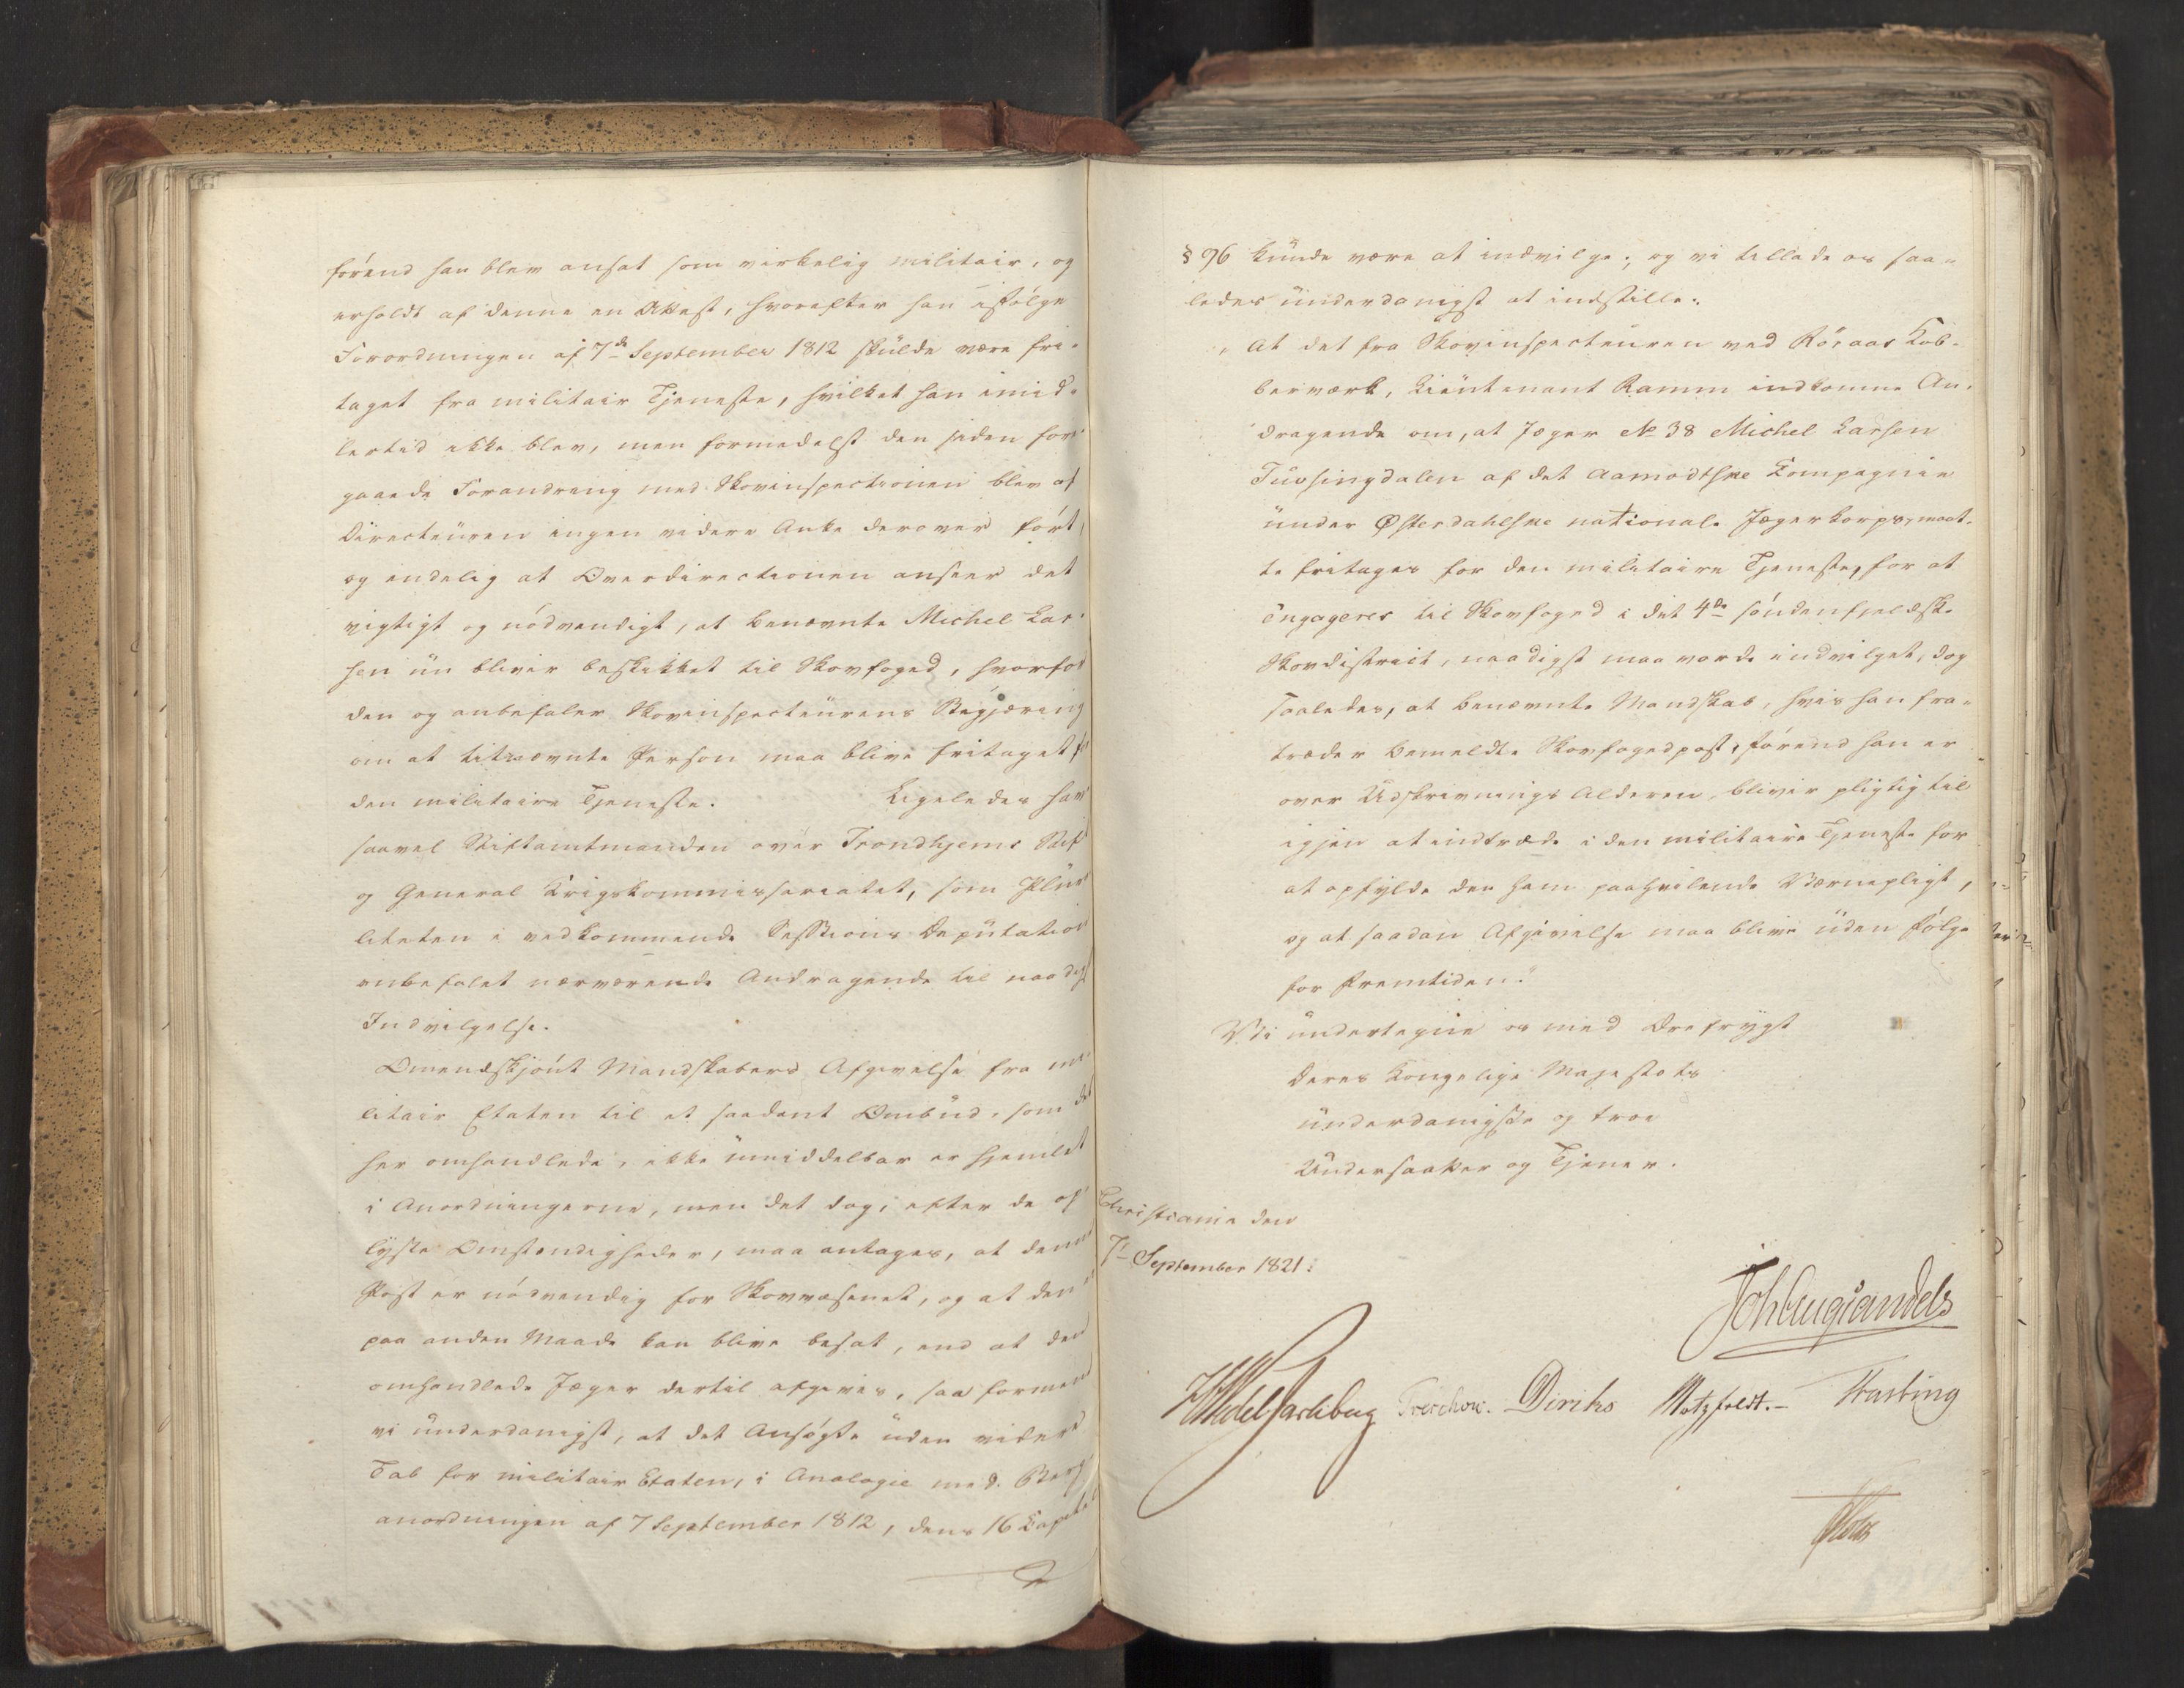 förend han blev ansat som virkelig militair, og
erholdt af denne en Attest, hvorefter han ifölge
Forordningen af 7de September 1812 skulde være fri-
taget fra militair Tjeneste, hvilket han imid-
lertid ikke blev, men formedelst den siden fore-
gaaede Forandring med Skovinspectionen blev af
Directeuren ingen videre Anke derover fört,
og endelig at Overdirectionen anseer det
vigtigt og nödvendigt, at benævnte Michel Lar-
sen nu bliver beskikket til Skovfoged, hvorfor
den og anbefaler Skovinspecteurens Begjæring
om at titnævnte Person maa blive fritaget for
den militaire Tjeneste. Ligeledes have
saavel Stiftamtmanden over Trondhjems Stift
og General Krigskommissariatet, som Plura-
liteten i vedkommende Sessions Deputation
anbefalet nærværende Andragende til naadigst
Indvilgelse.
Omendskjönt Mandskabers Afgivelse fra mi-
litair Etaten til et saadant Ombud, som det
her omhandlede, ikke umiddelbar er hjemlet
i Anordningerne, men det dog, efter de op-
lyste Omstændigheder, maa antages, at denne
Post er nödvendig for Skovvæsenet, og at den ei
paa anden Maade kan blive besat, end at den
omhandlede Jæger dertil afgives, saa formene
vi underdanigst, at det Ansögte uden videre
Tab for militair Etaten, i Analogie med Berg-
anordningen af 7 September 1812, dens 16 Kapitel
§ 96 kunde være at indvilge; og vi tillade os saa-
ledes underdanigst at indstille:
"At det fra Skovinspecteuren ved Röraas Kob-
berværk, Lieutenant Ramm indkomne An-
dragende om, at Jæger No 38 Michel Larsen
Tufsingdalen af det Aamodtske Kompagnie
under Østerdahlske nationale Jægerkorps, maat-
te fritages for den militaire Tjeneste, for at
engageres til Skovfoged i det 4de söndenfjeldske
Skovdistrict, naadigst maa vorde indvilget, dog
saaledes, at benævnte Mandskab, hvis han fra-
træder bemeldte Skovfogedpost, förend han er
over Udskrivnings Alderen, bliver pligtig til
igjen at indtræde i den militaire Tjeneste for
at opfylde den ham paahvilende Værnepligt,
og at saadan Afgivelse maa blive uden Fölge
for Fremtiden."
Vi undertegne os med Ærefrygt
Deres Kongelige Majestæts
underdanigste og troe
Undersaatter og Tjenere.
Christiania den
7 September 1821.
Joh Aug Sandels
HWedel Jarlsberg Treschow. Diriks Motzfeldt. Fasting
Holst